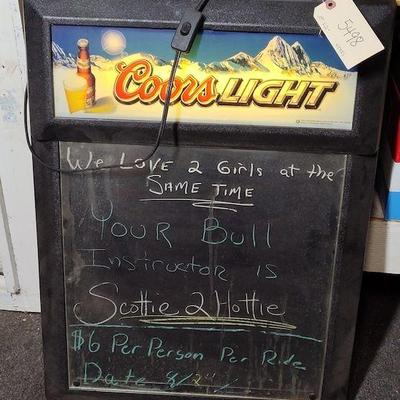 5498
Coors LIGHT
We LOVE 2 Girls at the
SAME TIME
YOUR BULL
Instructor is
Scottie 2 Hottie
$6 Per Person Per Ride
Date 8/2